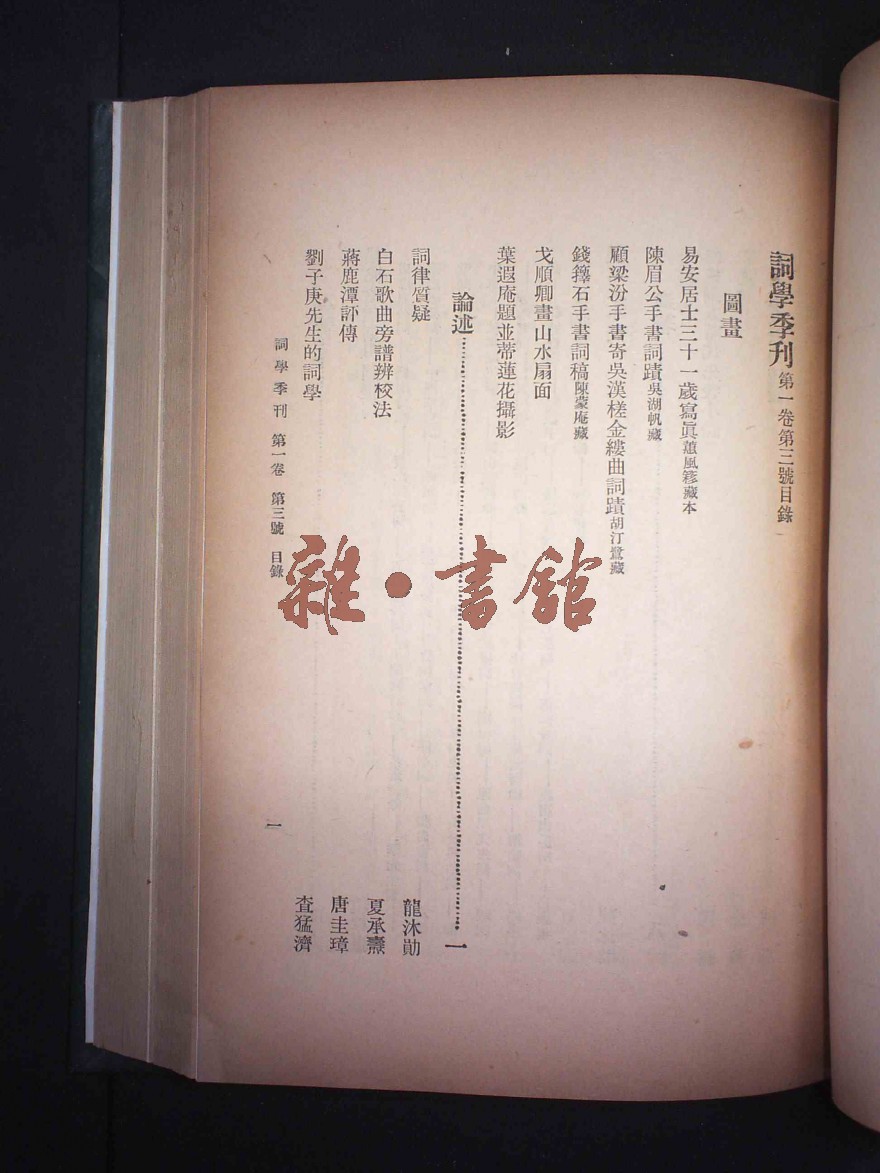 詞學季刊第一卷第三號目錄
圖畫
易安居士三十一歲寫眞蕙風簃藏本
陳眉公手書詞蹟吳湖帆藏
顧梁汾手書寄吳漢槎金縷曲詞蹟胡汀鷺藏
錢籜石手書詞稿陳蒙庵藏
戈順卿畫山水扇面
葉遐庵題並蒂蓮花攝影
論述 一
詞律質疑 龍沐勛
白石歌曲旁譜辨校法 夏承燾
蔣鹿潭評傳 唐圭璋
劉子庚先生的詞學 查猛濟
詞學季刊 第一卷 第三號 目錄 一
雜·書館